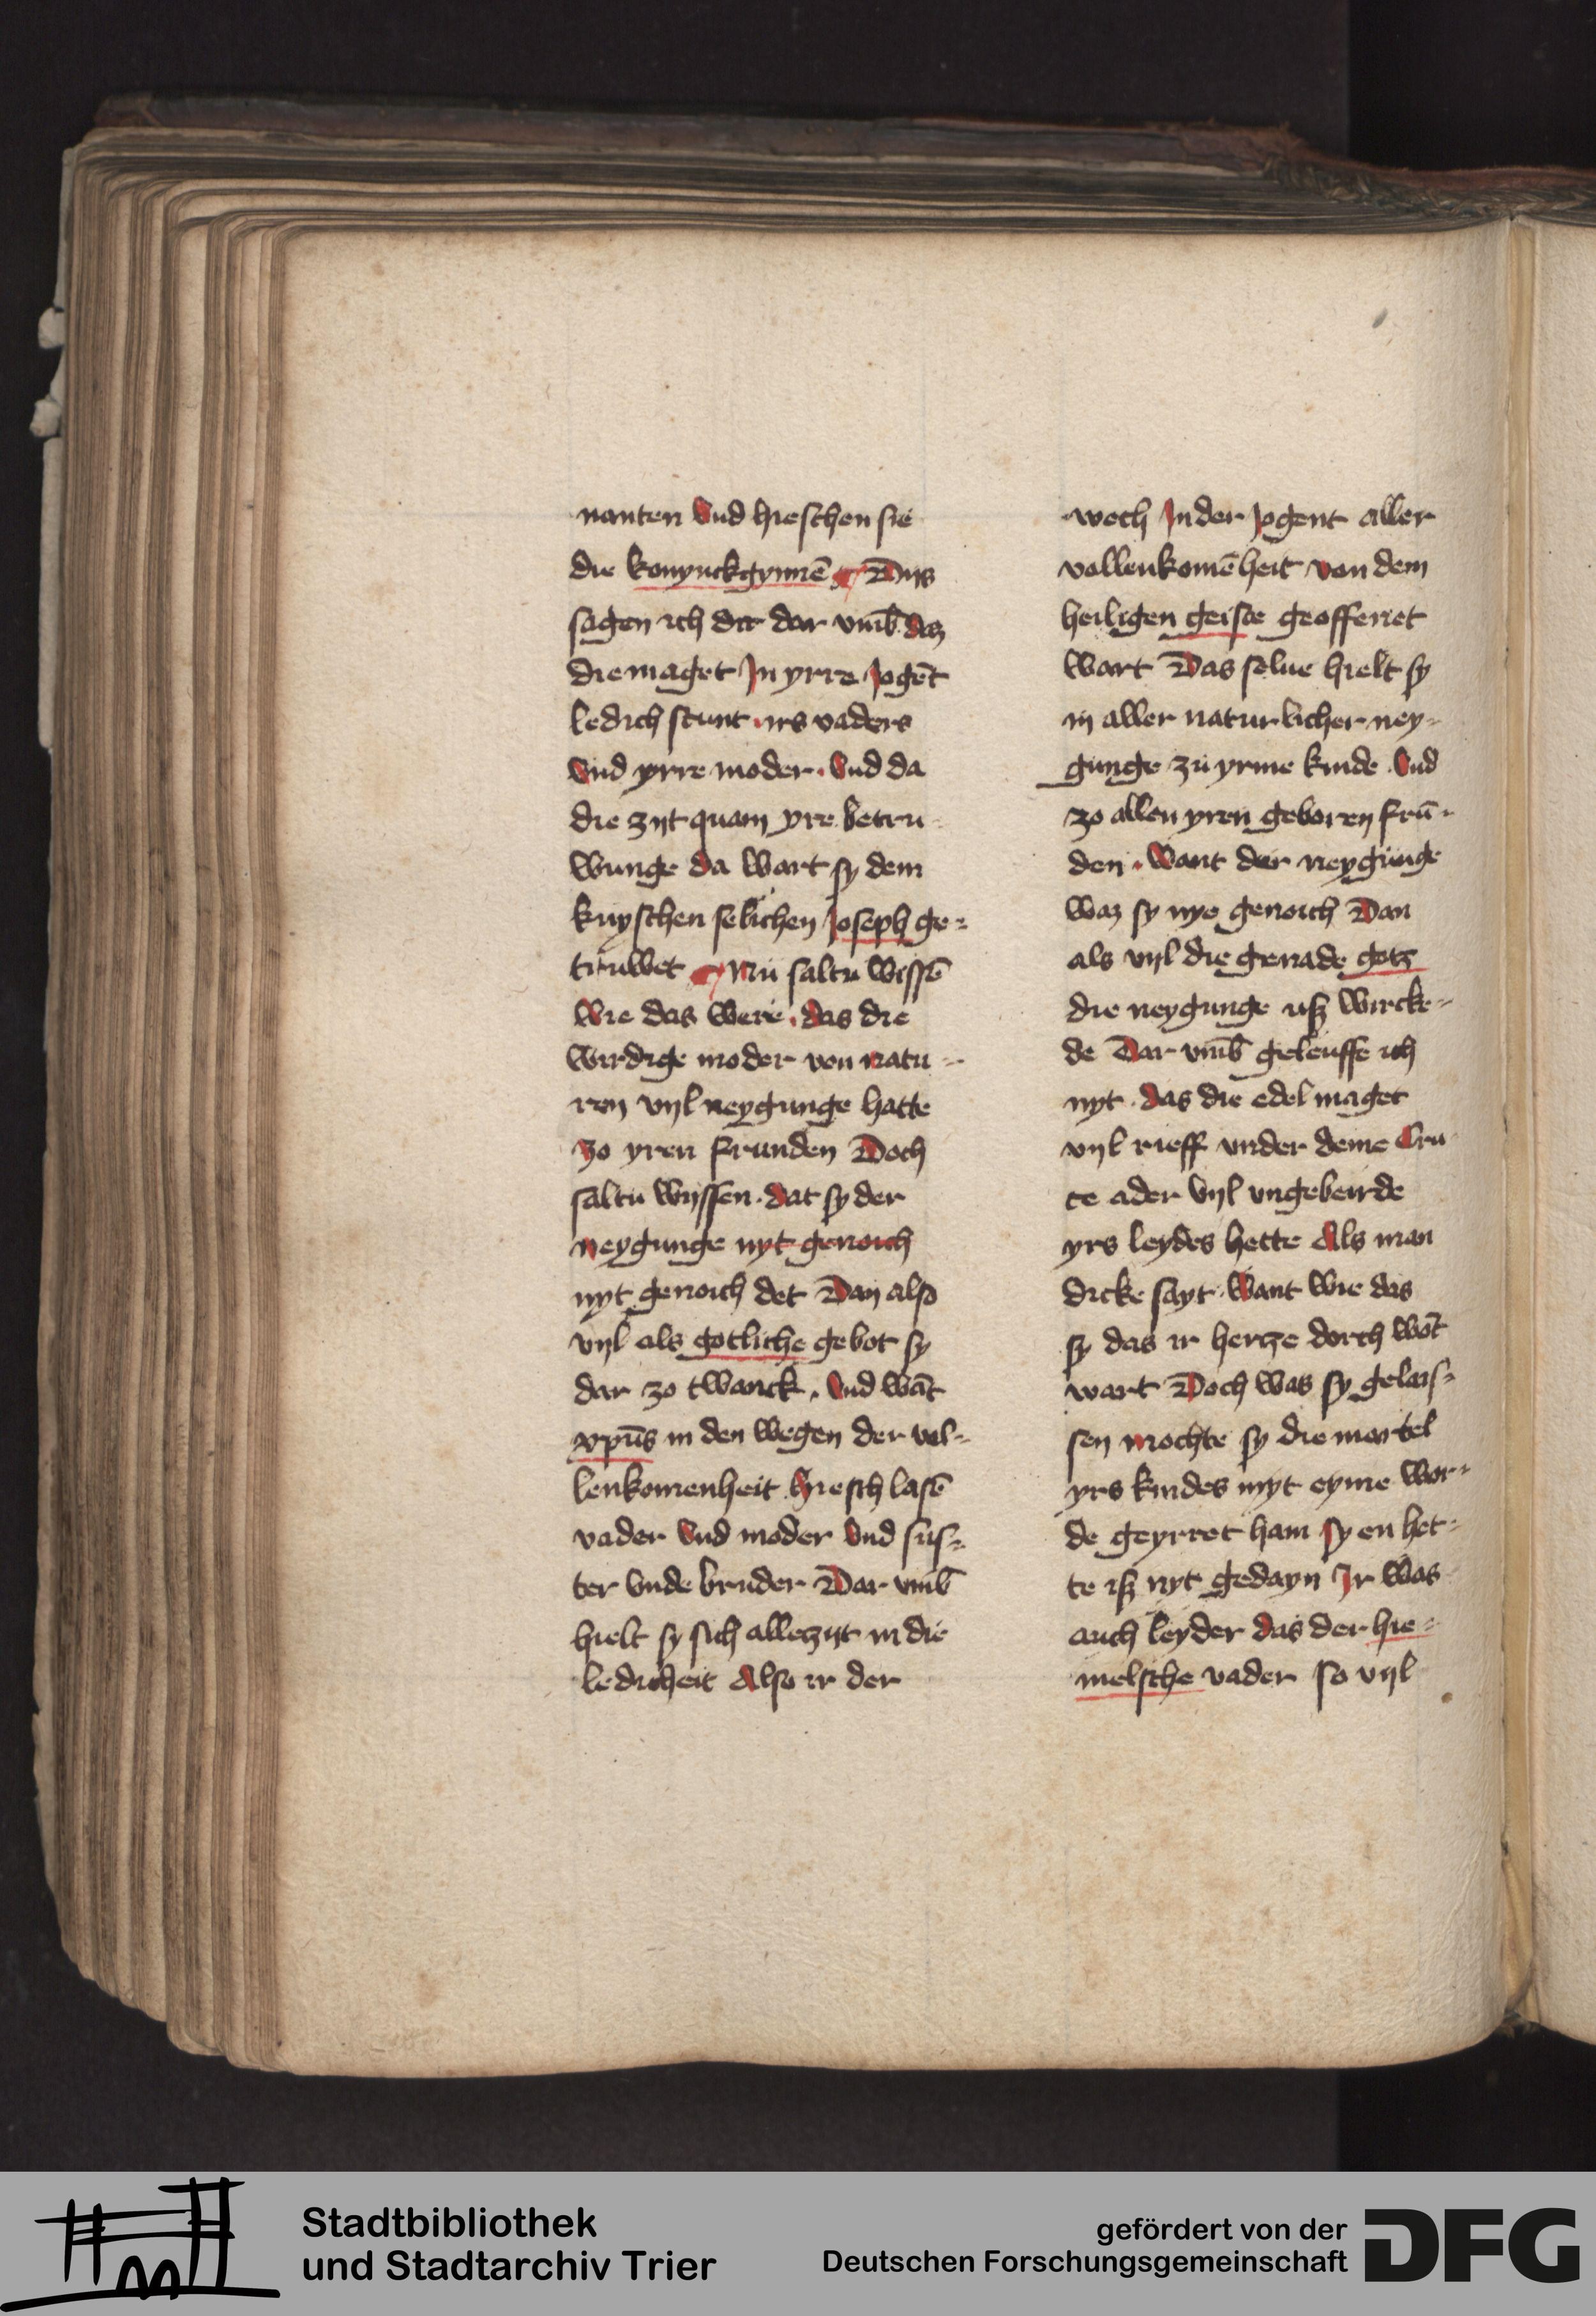 nanten vnd hieschen sie
die konynckgynnē Dijs
sagen ich dir dar vmb daz
die maget Jn yrre Jogēt
ledich stunt irs vaders
vnd yrre moder. Vnd da
die zijt quam yre betru
wunge da wart sy dem
kuyschen selichen Joseph ge=
truwet Nu saltu wissē
wie das were. das die
wirdige moder von natu=
ren vijl neygunge hatte
zo yren frunden Doch
saltu wyssen. dat sy der
neygunge nyt genoich
nyt genoich det Dan also
vijl als gotliche gebot sy
dar zo twanck. Vnd wāt
xpūs in den wegen der vol=
lenkomenheit hiesch lasē
vader vnd moder vnd sus=
ter vnde bruder Dar vmb
hielt sy sich allezijt in die
ledicheit Also ir der
wech Jn der Jogent aller
vollenkomēheit von dem
heiligen geiste geoffenet
wart Das selue hielt sy
in aller naturlicher ney=
gunge zu yrme kinde. Vnd
zo allen yren geboren frū=
den. Want der neygunge
waz sy nye genoich Dan
als vijl die genade gotz
die neygunge uß wircke=
de Dar vmb geleuffe ich
nyt. das die edel maget
vijl rieff vnder deme Cru
ce ader vijl vngebeirde
yrs leydes hette Als man
dicke sayt. Want wie das
sy das ir hertze dorch wōt
wart Doch was sy gelais=
sen mochte sy die martel
yrs kindes myt eyme wor=
de geyrret ham sy en het=
te iß nyt gedayn Jr was
auch leyder das der hie=
melsche vader so vijl
Stadtbibliothek
und Stadtarchiv Trier
gefördert von der
Deutschen Forschungsgemeinschaft
DFG